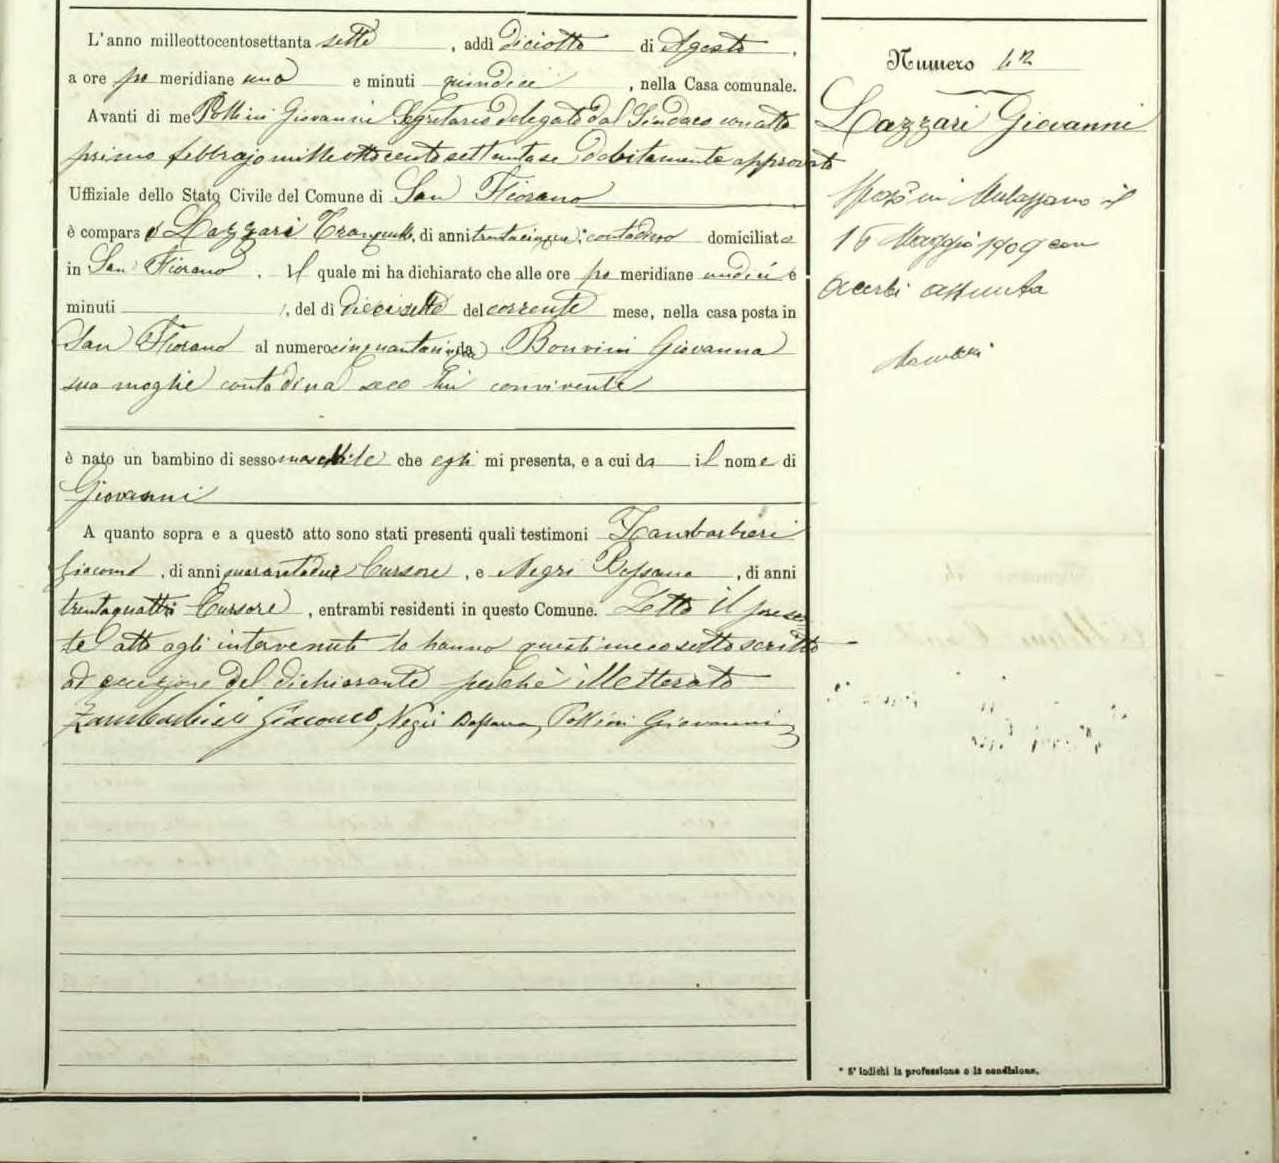 L'anno milleottocentosettanta sette, addì diciotto di Agosto,
a ore po meridiane una e minuti quindici, nella Casa comunale.
Avanti di me Pollini Giovanni Segretario delegato dal Sindaco con atto
primo febbrajo mille ottocento settantasei debitamente approvato
Uffiziale dello Stato Civile del Comune di San Fiorano
è comparso Lazzari Tranquillo, di anni trentacinque, contadino domiciliato
in San Fiorano. Il quale mi ha dichiarato che alle ore po meridiane undici e
minuti, del dì diecisette del corrente mese, nella casa posta in
San Fiorano al numero cinquantacinque da Bonvini Giovanna
sua moglie contadina seco lui convivente
è nato un bambino di sesso maschile che egli mi presenta, e a cui dà il nome di
Giovanni
A quanto sopra e a questo atto sono stati presenti quali testimoni Zambarbieri
Giacomo, di anni quarantadue Cursore, e Negri Bassano, di anni
trentaquattro Cursore, entrambi residenti in questo Comune. Letto il presen
te atto agli intervenuti lo hanno questi meco sottoscritto
ad eccezione del dichiarante perchè illetterato
Zambarbieri Giacomo, Negri Bassano, Pollini Giovanni
Numero 42
Lazzari Giovanni
Sposò in Mulazzano il
Maggio 1909 con
Acerbi Assunta
* S'indichi la professione o la condizione.